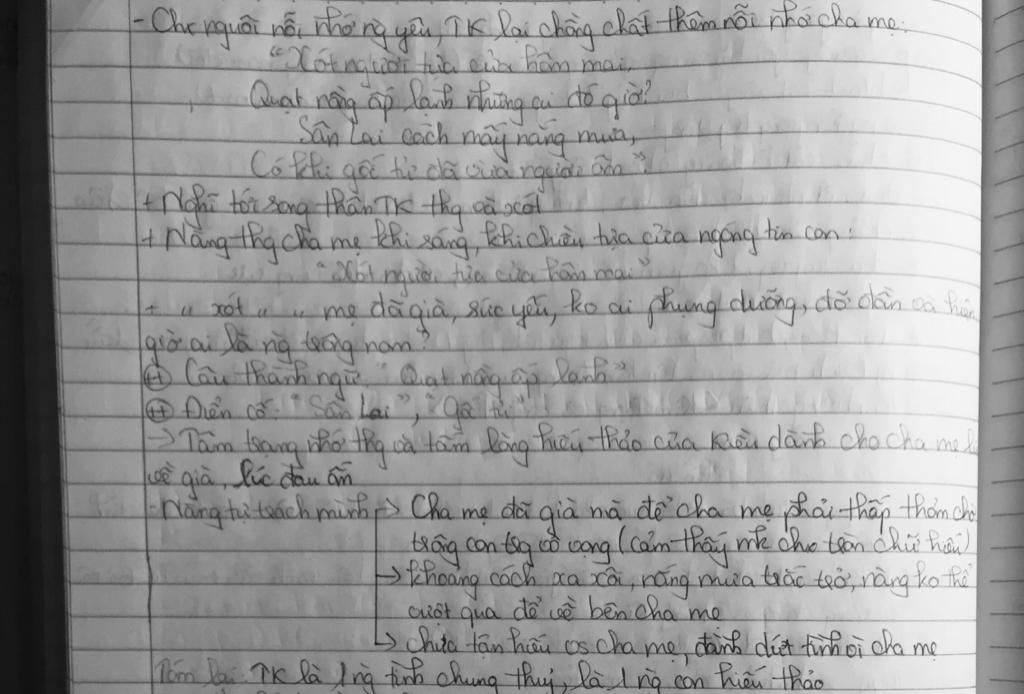 - Chx người nỗi nhớ ng yêu, TK lại chồng chất thêm nỗi nhớ cha mẹ:
"Xót người tựa cửa hôm mai,
Quạt nồng ấp lạnh những ai đó giờ?
Sân Lai cách mấy nắng mưa,
Có khi gốc tử đã vừa người ôm"
+ Nghĩ tới song thân TK thg và xót
+ Nàng thg cha mẹ khi sáng, khi chiều tựa cửa ngóng tin con:
"Xót người tựa cửa hôm mai"
+ " xót " " mẹ đã già, sức yếu, ko ai phụng dưỡng, đỡ đần và hiện
giờ ai là ng trông nom?
(+) Câu thành ngữ: "Quạt nồng ấp lạnh"
(+) Điển cố: "Sân Lai", "Gốc tử"
→ Tâm trạng nhớ thg và tấm lòng hiếu thảo của Kiều dành cho cha mẹ
về già, lúc đau ốm
- Nàng tự trách mình → Cha mẹ đã già mà để cha mẹ phải thấp thỏm chờ
trông con trg vô vọng (cảm thấy mk cho tròn chữ hiếu)
→ khoảng cách xa xôi, nắng mưa trắc trở, nàng ko thể
vượt qua để về bên cha mẹ
→ chưa tận hiếu vs cha mẹ, đành dứt tình vì cha mẹ
Tóm lại: TK là 1 ng tình chung thuỷ, là 1 ng con hiếu thảo